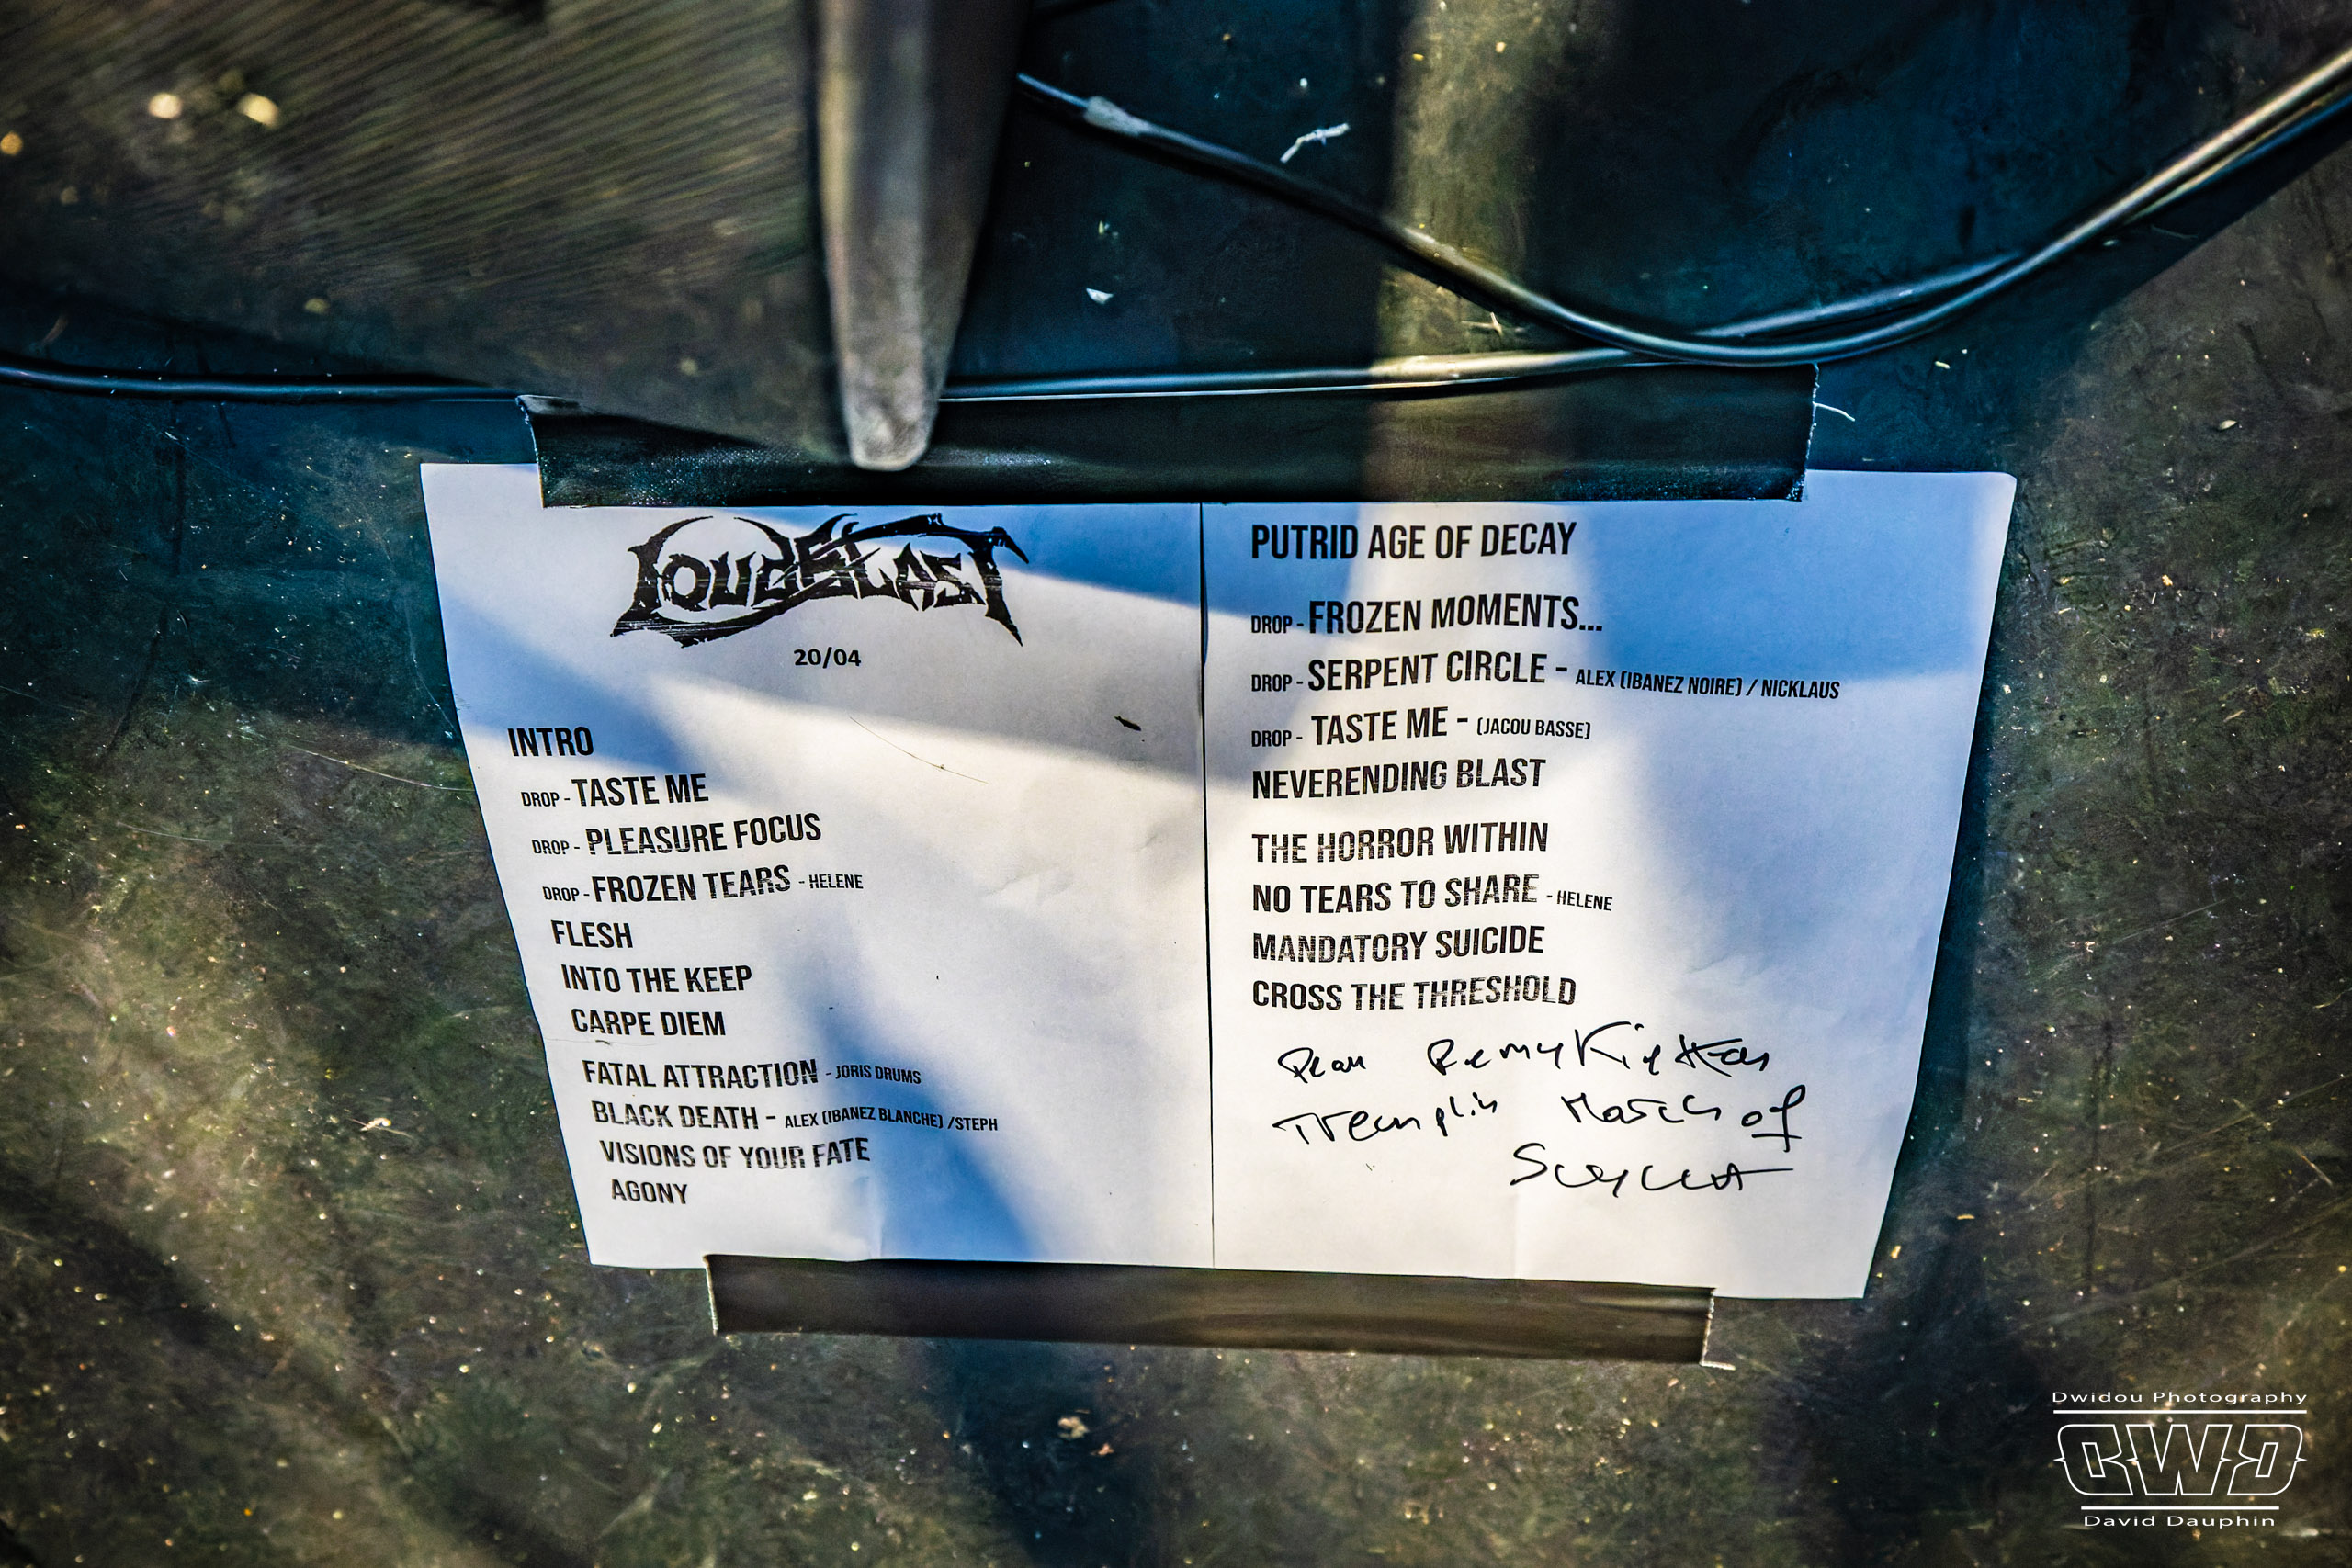 LOUDBLAST
20/04
INTRO
DROP - TASTE ME
DROP - PLEASURE FOCUS
DROP - FROZEN TEARS - HELENE
FLESH
INTO THE KEEP
CARPE DIEM
FATAL ATTRACTION - JORIS DRUMS
BLACK DEATH - ALEX (IBANEZ BLANCHE) /STEPH
VISIONS OF YOUR FATE
AGONY
PUTRID AGE OF DECAY
DROP - FROZEN MOMENTS...
DROP - SERPENT CIRCLE - ALEX (IBANEZ NOIRE) / NICKLAUS
DROP - TASTE ME - (JACOU BASSE)
NEVERENDING BLAST
THE HORROR WITHIN
NO TEARS TO SHARE - HELENE
MANDATORY SUICIDE
CROSS THE THRESHOLD
Tremplin March of
Dwidou Photography
DWD
David Dauphin